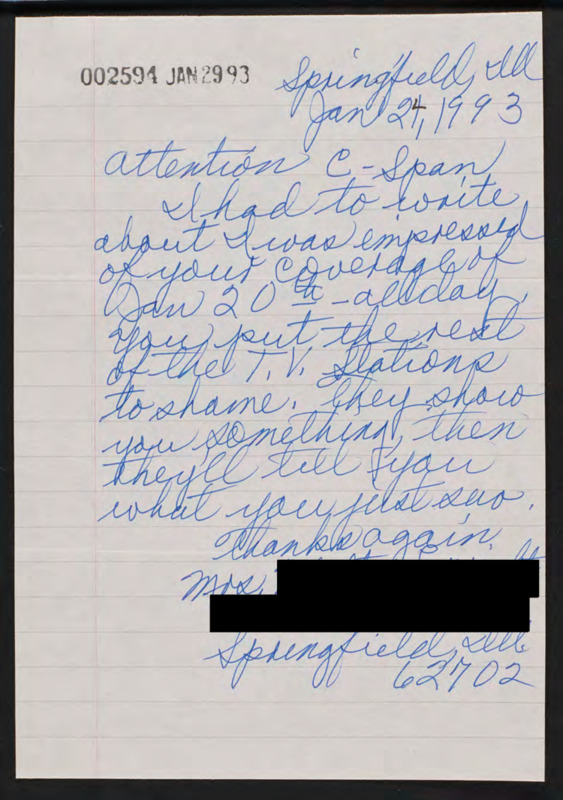 002594 JAN 29 93
Springfield, Ill
Jan 24, 1993
Attention C-Span,
I had to write
about I was impressed
of your coverage of
Jan 20th - all day.
You put the rest
of the T.V. Stations
to shame. They show
you something, then
they'll tell you
what you just saw.
Thanks again.
Mrs.
Springfield, Ill.
62702